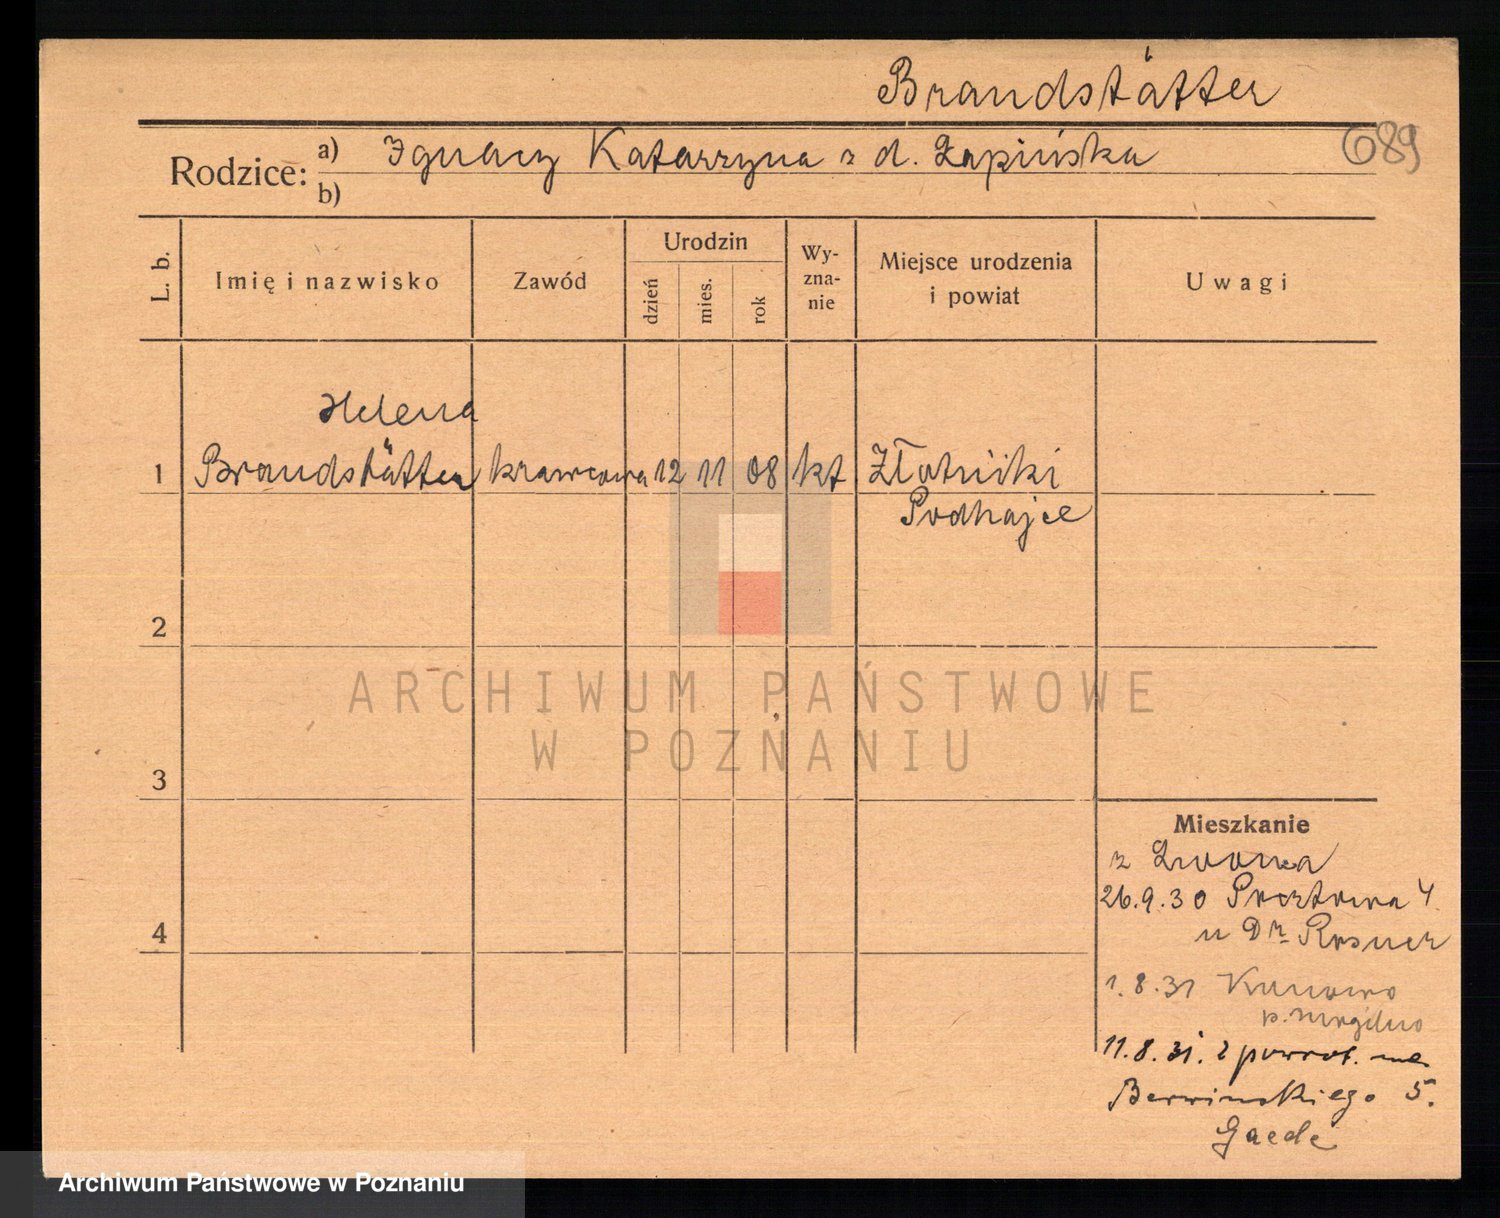 Brandstätter
689
Rodzice: a) Ignacy Katarzyna z d. Łapińska
b)
L. b.
Imię i nazwisko
Zawód
Urodzin
dzień
mies.
rok
Wy-
zna-
nie
Miejsce urodzenia
i powiat
Uwagi
Helena
1 Brandstätter krawcowa 12 11 08 kt Złotniki
Podhajce
2
ARCHIWUM PAŃSTWOWE
W POZNANIU
3
4
Mieszkanie
z Lwowa
26.9.30 Pocztowa 4
u Dr Rosner
1.8.31 Kunowo
p. Mogilno
11.8.31. z powrot. na
Berwińskiego 5.
Gaede
Archiwum Państwowe w Poznaniu